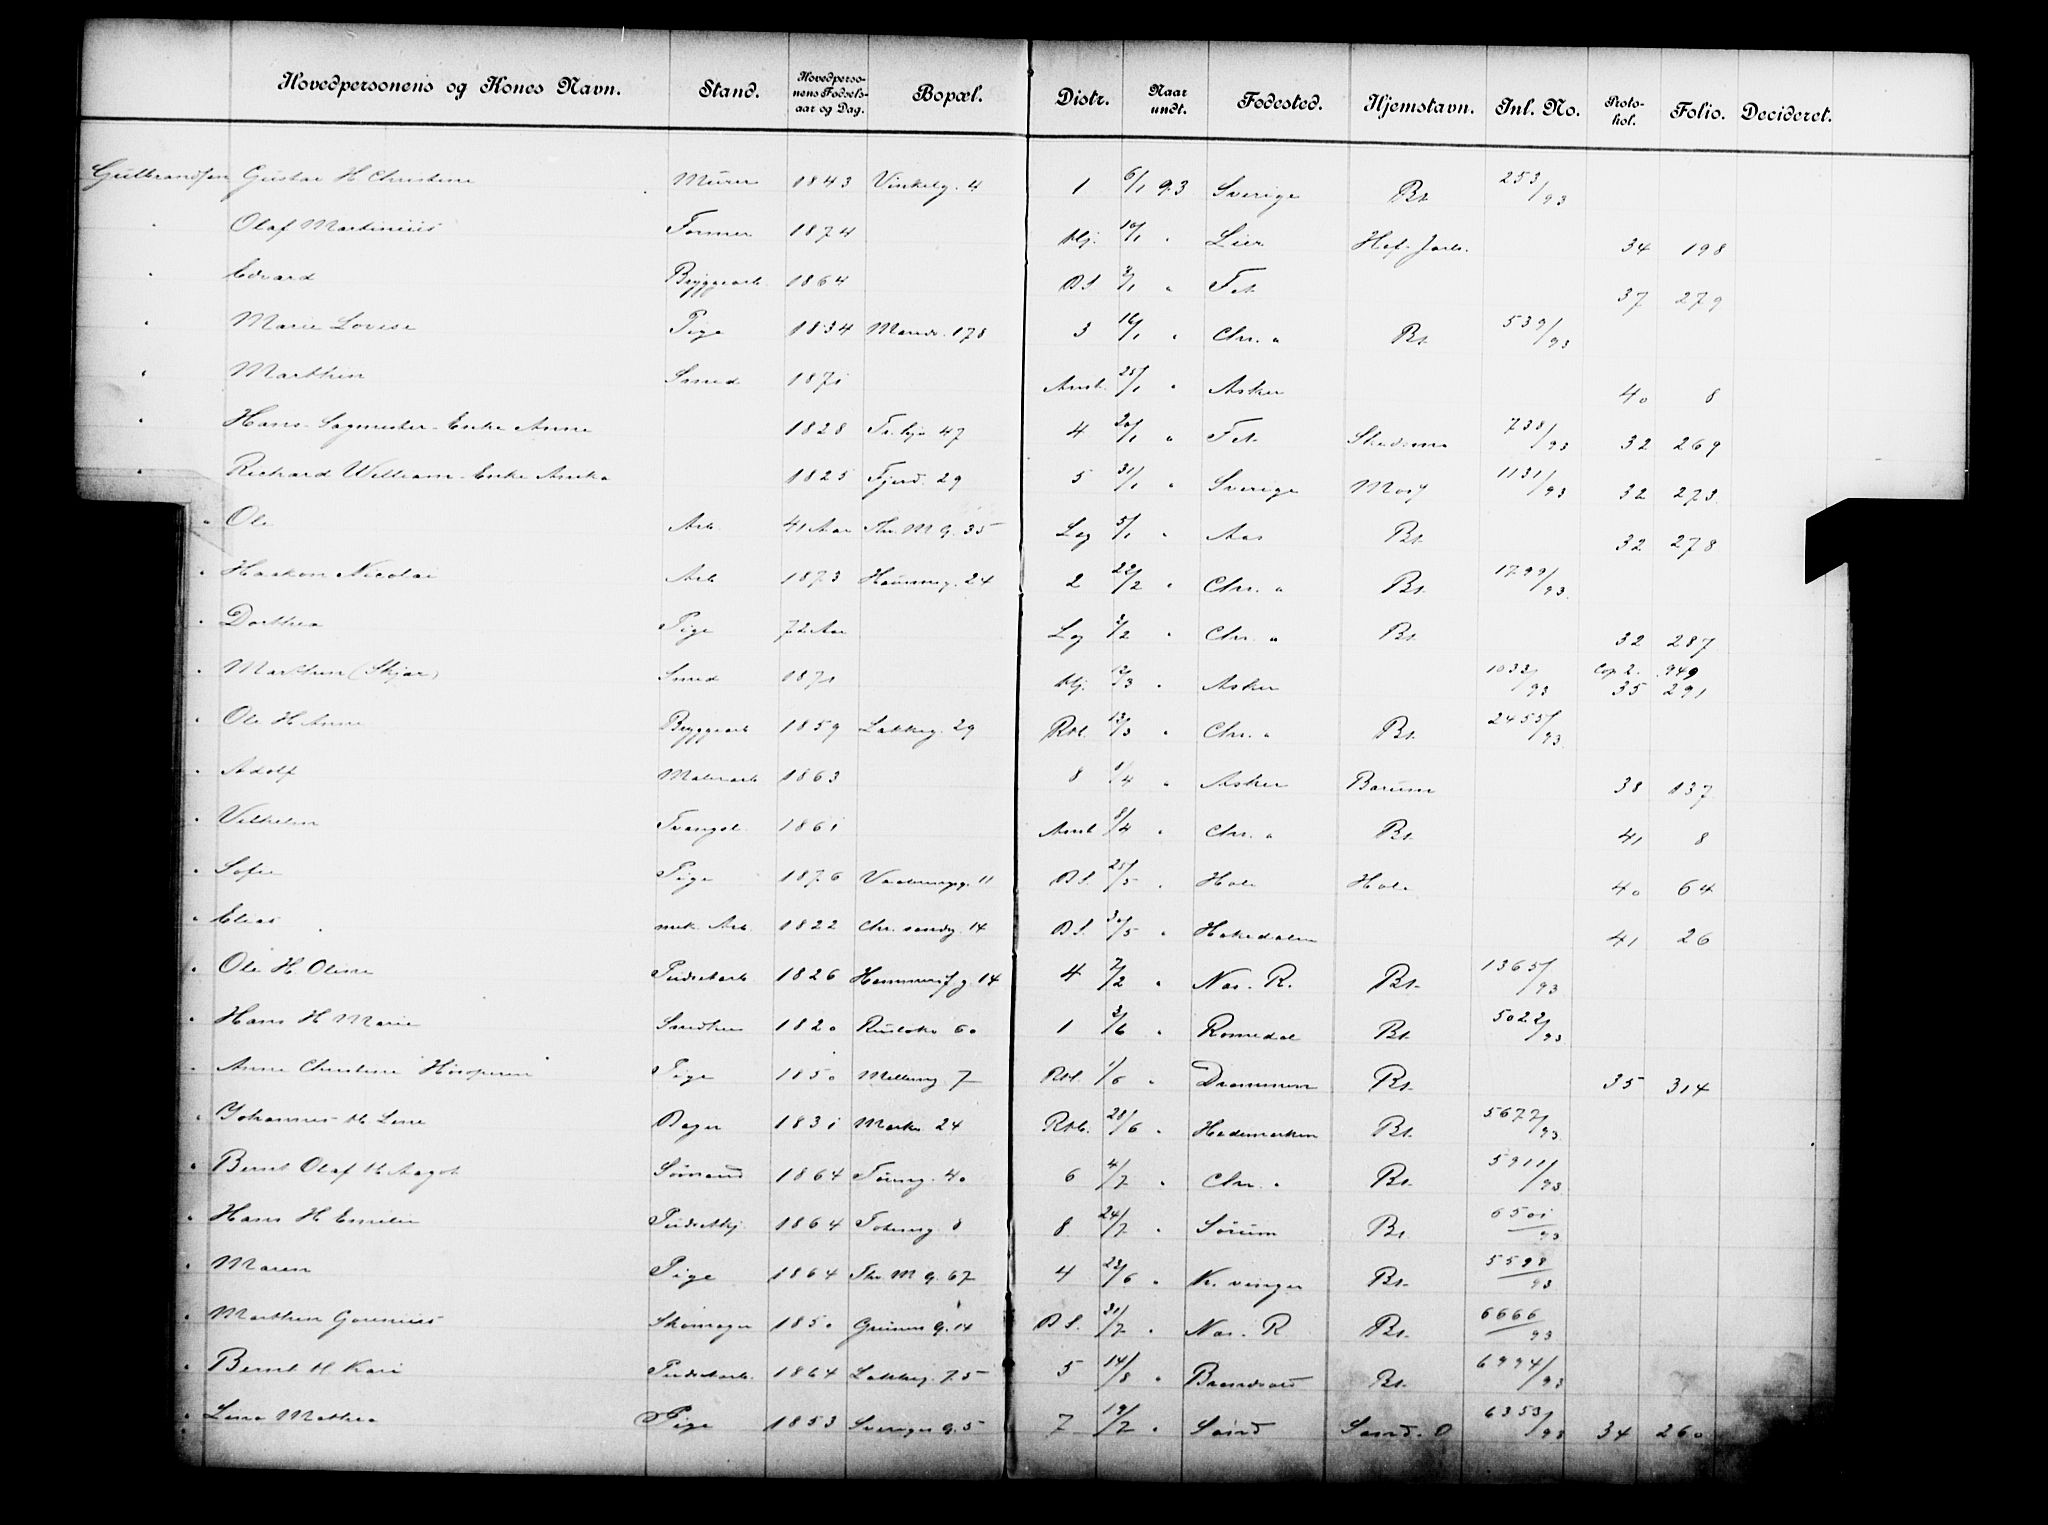 Hovedpersonens og Kones Navn. Stand. Hovedperso-nens Fødsels-aar og Dag. Bopæl. Distr. Naar undt. Fødested. Hjemstavn. Inl. No. Proto-kol. Folio. Decideret.
Gulbrandsen Gustav H Christine Murer 1843 Vinkelg. 4 1 6/1 93 Sverige Bt. 253/93
" Olaf Martinius Former 1874 Hj. 10/1 " Lier Hof. Jarls. 34 198
" Edvard Bryggearb. 1864 B.S. 3/1 " Fet 37 279
" Marie Lovise Pige 1834 Mands. 178 3 16/1 " Chr. a Bt. 539/93
" Marthin Smed 1871 Anst. 25/1 " Asker 40 8
" Hans Sagmester Enke Anne 1828 47 4 20/1 " Fet Skedsmo 738/93 32 269
" Richard William Enke Anika 1825 Fjerd. 29 5 31/1 " Sverige Moss 1131/93 32 273
" Ole Arb. 41 Aar Thv. M g. 35 Lg 5/1 " Aas Bt. 32 278
" Haakon Nicolai Arb 1873 Hausmg. 24 2 22/2 " Chr. a Bt. 1799/93
" Dorthea Pige 72 Aar Lg 3/2 " Chr. a Bt. 32 287
" Marthin (Skjar) Smed 1871 Hj. 12/3 " Asker 1033/93 Cop 2. 949
35 291
" Ole H Anne Bryggearb 1859 Lakkeg. 29 Rbl. 13/3 " Chr. a Bt. 2455/93
" Adolf Malerarb 1863 8 1/4 " Asker Bærum 38 137
" Vilhelm Tvangsl. 1861 Anst 8/4 " Chr. a Bt. 41 8
" Sofie Pige 1876 11 B.S. 25/5 " Hole Hole 40 64
" Elias mek. Arb. 1822 Chr. sandg. 14 B.S. 30/5 " Hakedalen 41 26
" Ole H Oline Pudsetarb 1826 Hammersf g. 14 4 7/2 " Næs. R. Bt. 1365/93
" Hans H Marie Snedker 1820 Rusløkv 60 1 3/6 " Romedal Bt. 5022/93
" Anne Christine Pige 1850 Mellemg 7 Rbl. 1/6 " Drammen Bt. 35 314
" Johannes H Lene Bager 1831 Markv 24 Rbl. 28/6 " Hedemarken Bt. 5677/93
" Bernt Olaf H Aagot Sømand 1864 40 6 4/7 " Chr. a Bt. 5911/93
" Hans H Emilie 1864 8 8 24/7 " Sørum Bt. 6501/93
" Maren Pige 1864 Thv. M g. 67 4 23/6 " Kr. vinger Bt. 5598/93
" Marthin Skomager 1850 Grüners g. 14 B.S. 31/7 " Næs. R Bt. 6666/93
" Bernt H Kari Pudsetarb. 1864 Lakkeg. 75 5 14/8 " Brandvold Bt. 6994/93
" Lina Mathea Pige 1853 Sveriges g. 5 7 19/7 " Sand Sand. O 6353/93 34 260